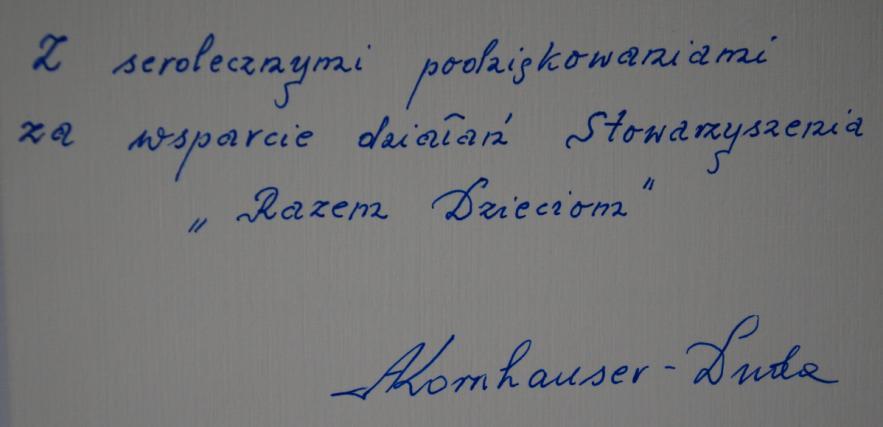 Z serdecznymi podziękowaniami
za wsparcie działań Stowarzyszenia
„Razem Dzieciom"
AKornhauser-Duda